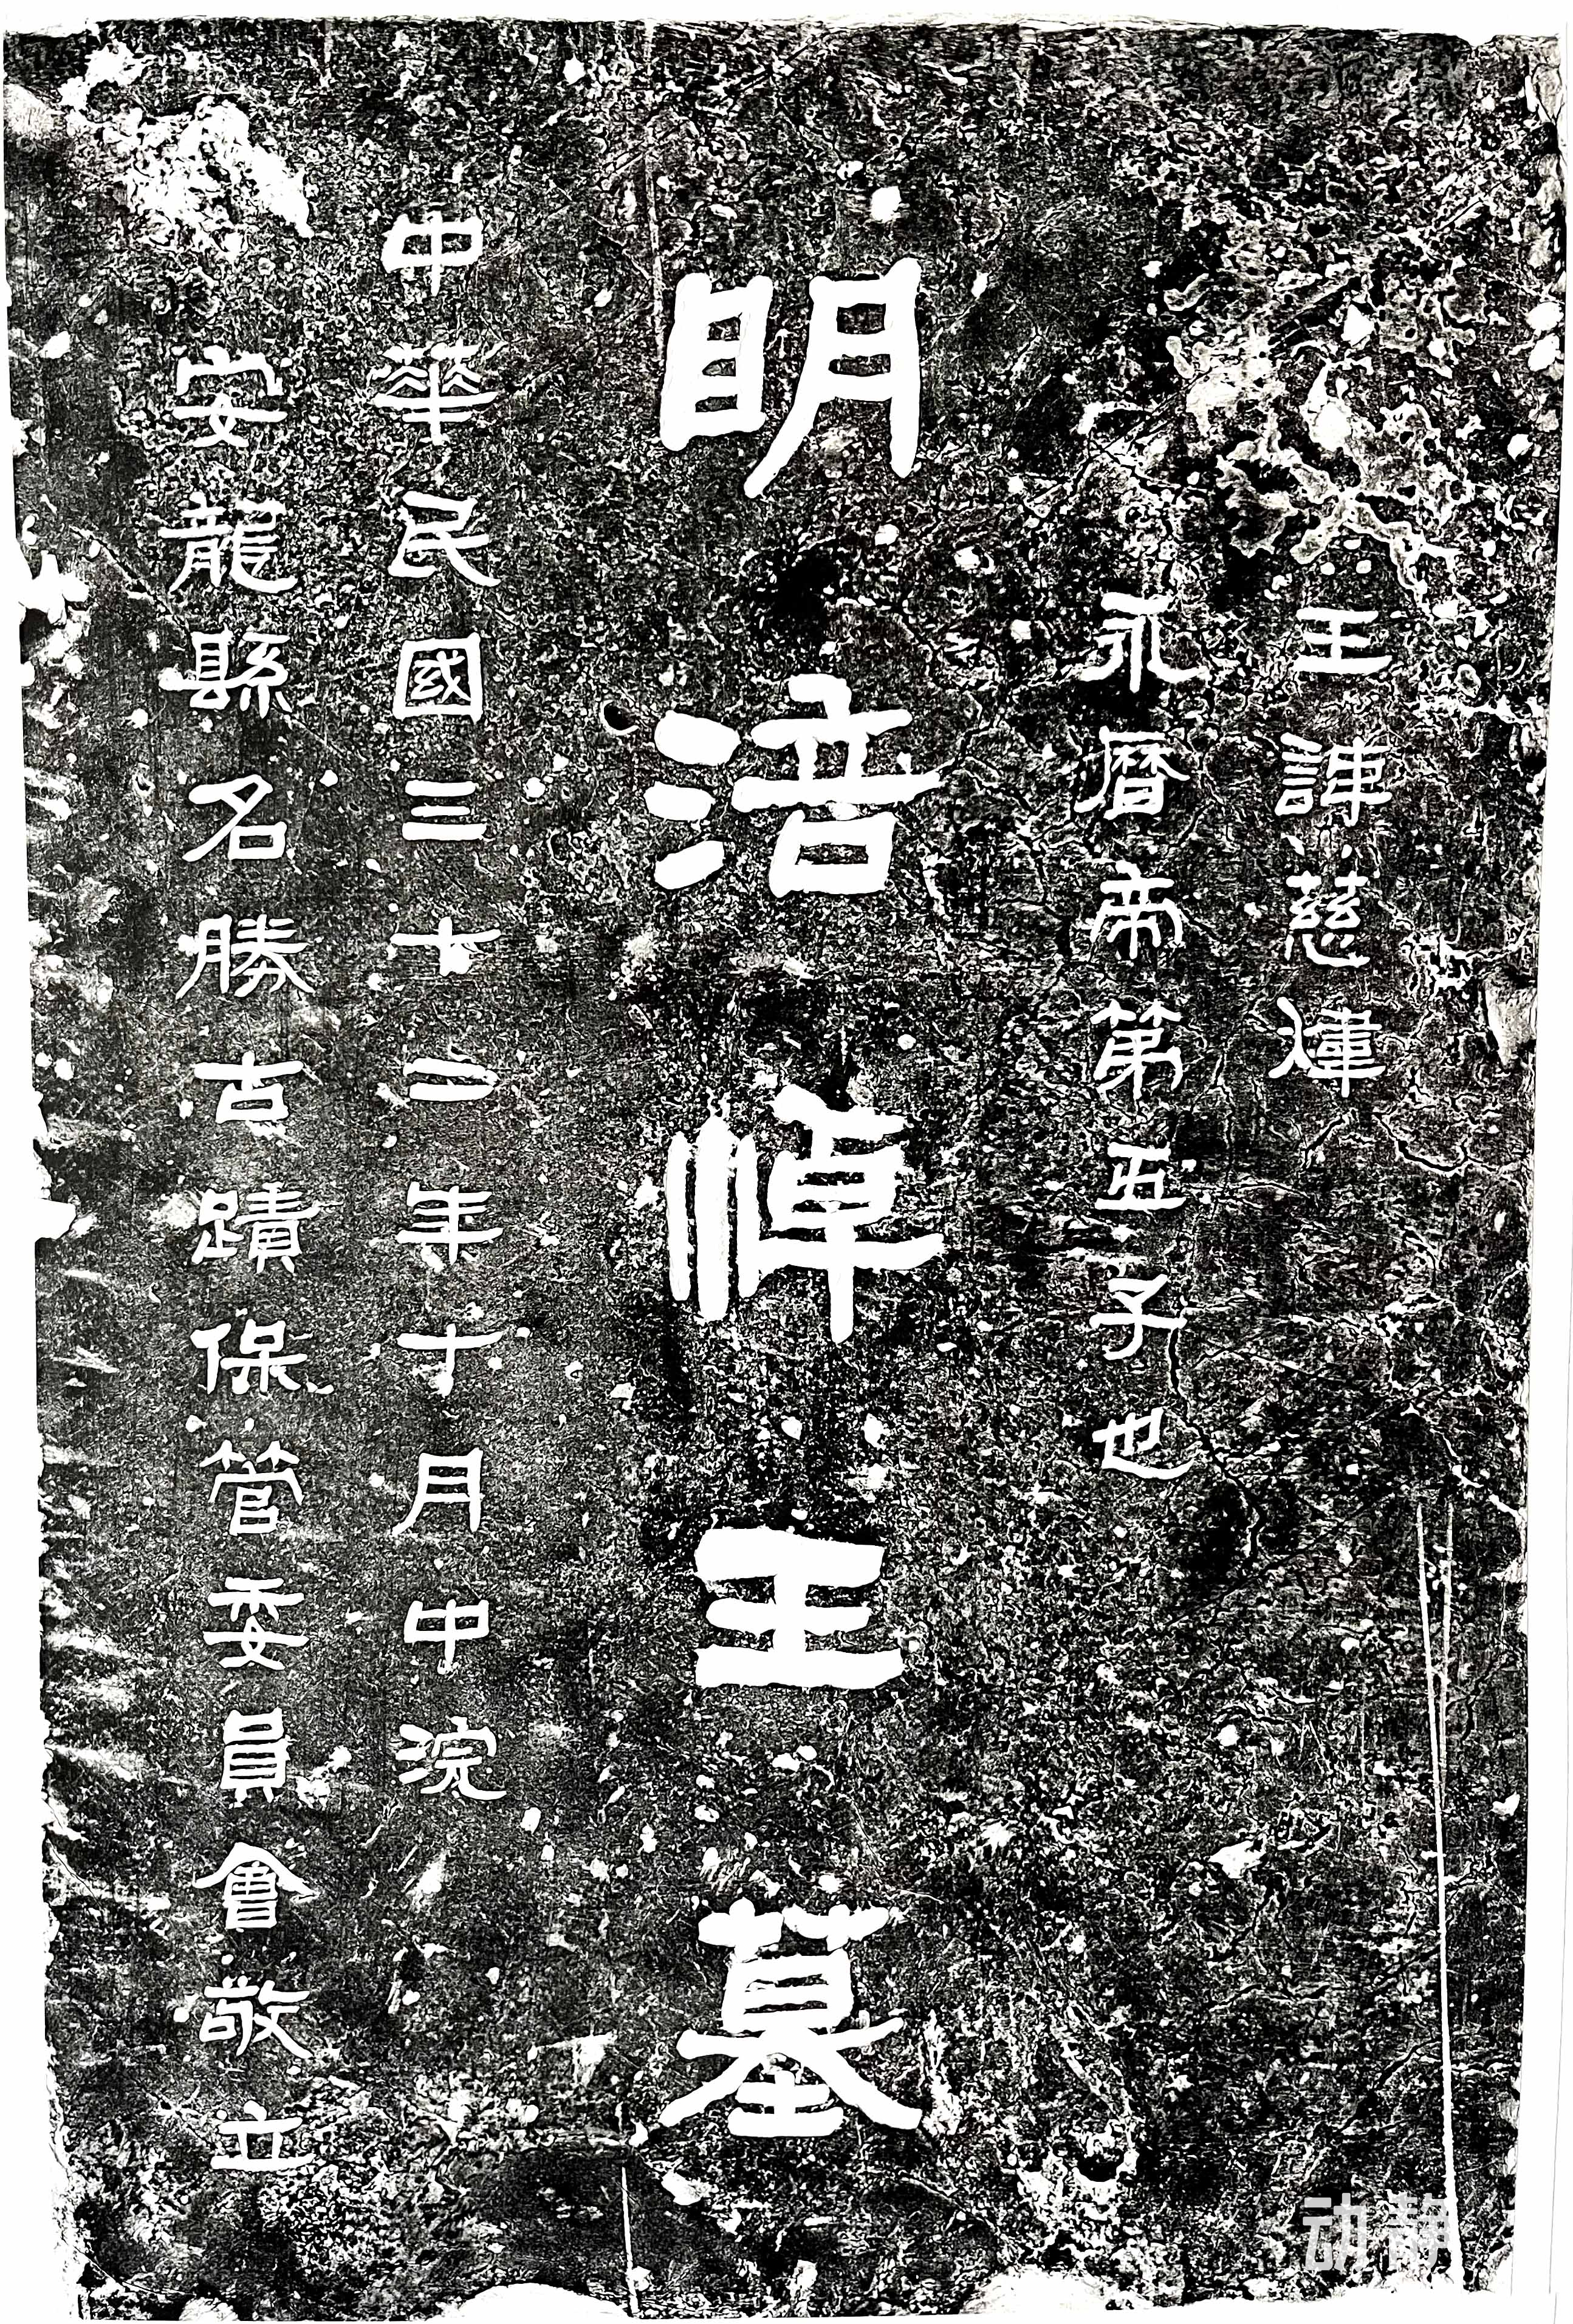 王諱慈煒
永曆帝第五子也
明涪悼王墓
中華民國三十二年十月中浣
安龍縣名勝古蹟保管委員會敬立
动静